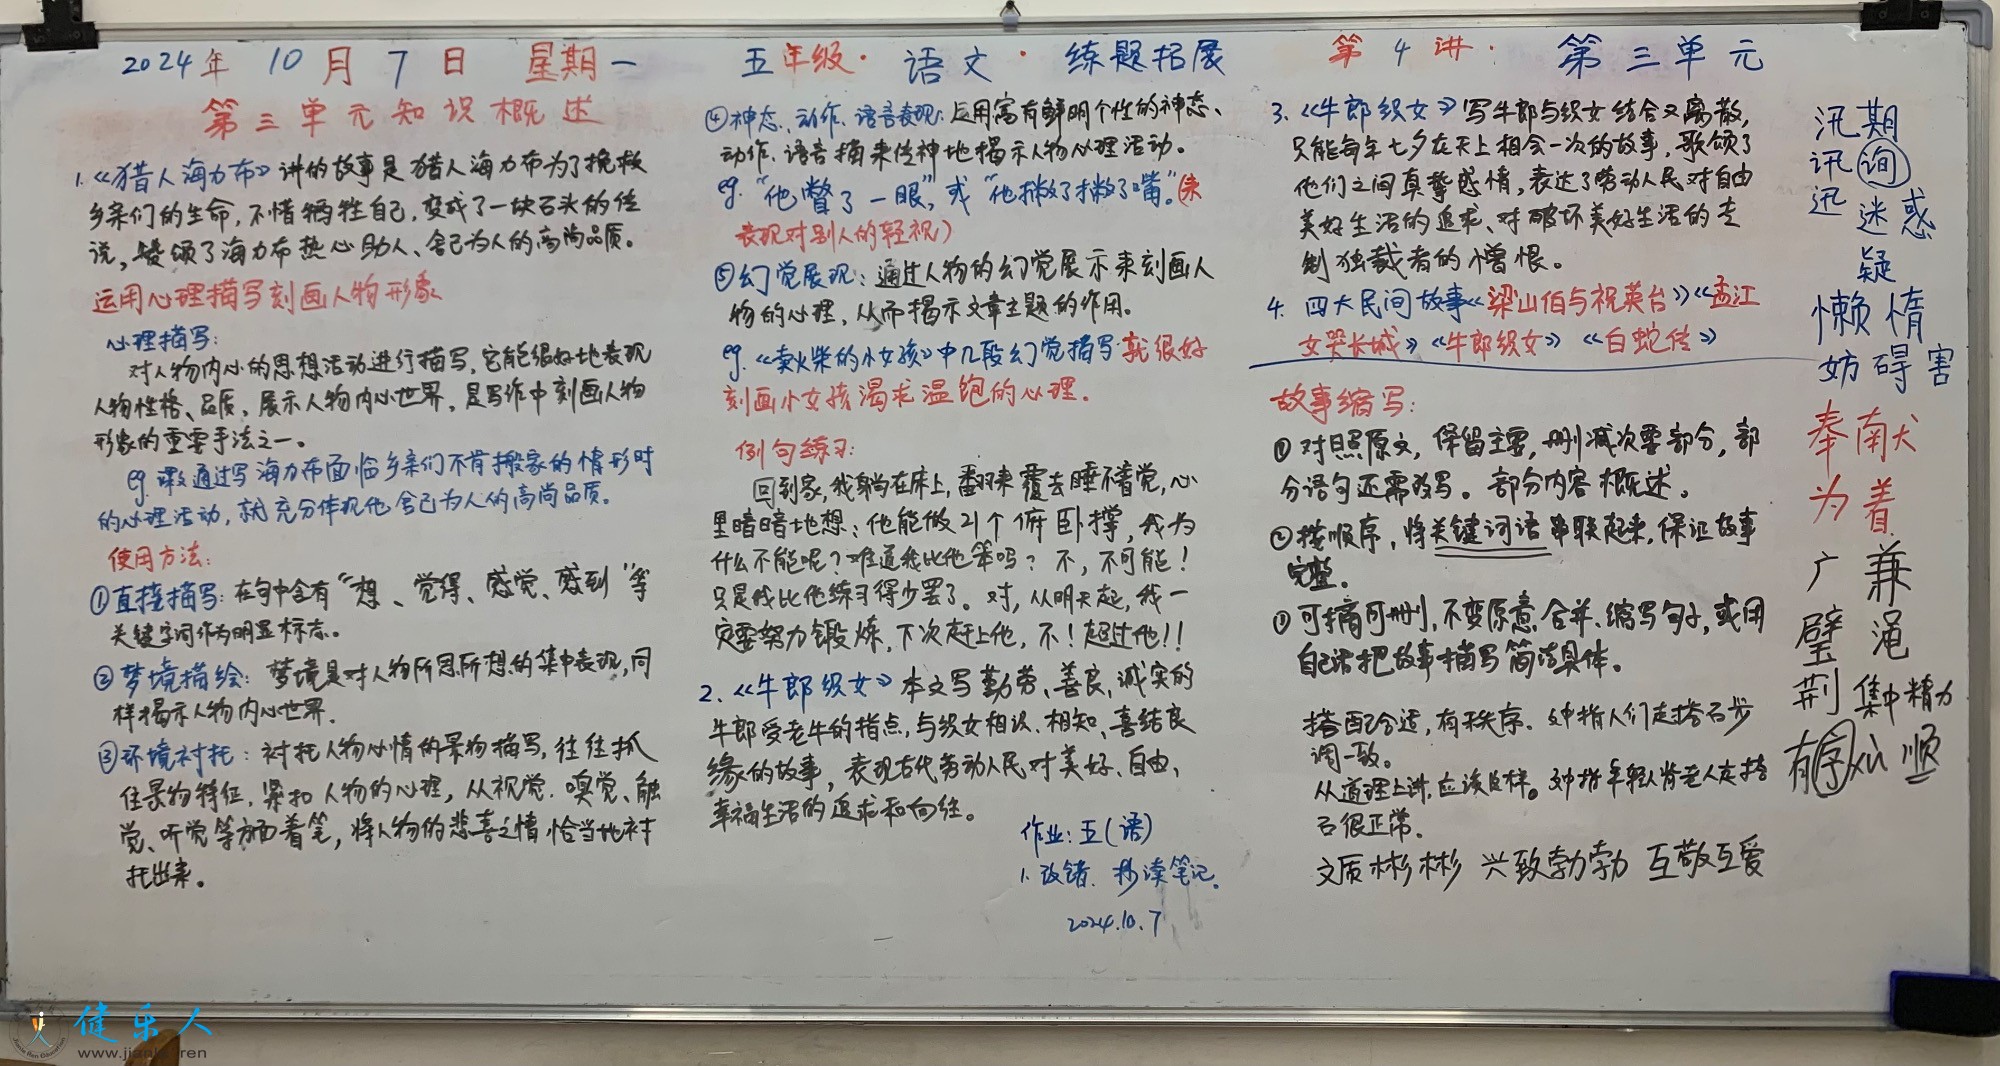 2024年 10月7日 星期一 五年级·语文·练题拓展 第4讲: 第三单元
第三单元知识概述
1.《猎人海力布》讲的故事是猎人海力布为了挽救
乡亲们的生命,不惜牺牲自己,变成了一块石头的传
说,赞颂了海力布热心助人、舍己为人的高尚品质。
运用心理描写刻画人物形象
心理描写:
对人物内心的思想活动进行描写,它能很好地表现
人物性格、品质,展示人物内心世界,是写作中刻画人物
形象的重要手法之一。
eg.课文通过写海力布面临乡亲们不肯搬家的情形时
的心理活动,就充分体现他舍己为人的高尚品质。
使用方法:
①直接描写:在句中含有“想、觉得、感觉、感到”等
关键字词作为明显标志。
②梦境描绘:梦境是对人物所思所想的集中表现,同
样揭示人物内心世界.
③环境衬托:衬托人物心情的景物描写,往往抓
住景物特征,紧扣人物的心理,从视觉、嗅觉、触
觉、听觉等方面着笔,将人物的悲喜之情恰当地衬
托出来。
④神态、动作、语言表现:运用富有鲜明个性的神态、
动作、语言描来传神地揭示人物心理活动。
eg.“他瞥了一眼”,或“他撇了撇了嘴。”(来
表现对别人的轻视)
⑤幻觉展现:通过人物的幻觉展示来刻画人
物的心理,从而揭示文章主题的作用。
eg.《卖火柴的小女孩》中几段幻觉描写就很好
刻画小女孩渴求温饱的心理.
例句练习:
回到家,我躺在床上,翻来覆去睡不着觉,心
里暗暗地想:他能做21个俯卧撑,我为
什么不能呢?难道我比他笨吗?不,不可能!
只是我比他练习得少罢了。对,从明天起,我一
定要努力锻炼,下次赶上他,不!超过他!!
2.《牛郎织女》本文写勤劳、善良、诚实的
牛郎受老牛的指点,与织女相识、相知、喜结良
缘的故事,表现古代劳动人民对美好、自由、
幸福生活的追求和向往。
作业:五(语)
1.改错、抄读笔记.
2024.10.7
3.《牛郎织女》写牛郎与织女结合又离散,
只能每年七夕在天上相会一次的故事,歌颂了
他们之间真挚感情,表达了劳动人民对自由
美好生活的追求、对破坏美好生活的专
制独裁者的憎恨。
4.四大民间故事《梁山伯与祝英台》《孟江
女哭长城》《牛郎织女》《白蛇传》
故事缩写:
①对照原文,保留主要,删减次要部分,部
分语句还需改写。部分内容概述。
②按顺序,将关键词语串联起来,保证故事
完整。
③可摘可删,不变原意,合并、缩写句子,或用
自己话把故事描写简洁具体。
搭配合适,有秩序.文中指人们走路石步
调一致。
从道理上讲,应该这样。文中指年轻人背老人走路
石很正常.
文质彬彬 兴致勃勃 互敬互爱
汛期
讯 询
迅 迷惑
疑
懒惰
妨碍害
奉献犬
为着
广 兼
璧 渑
荆 集中精力
有序 从 顺
健乐人